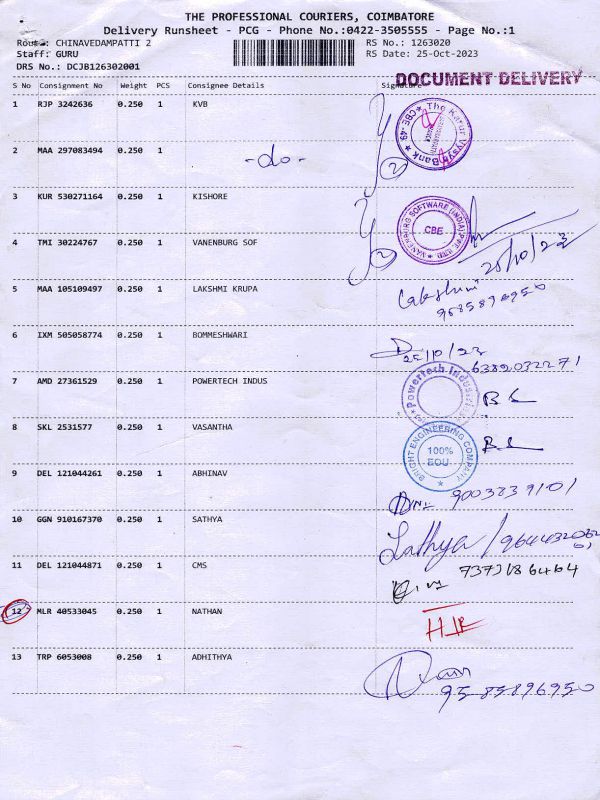 THE PROFESSIONAL COURIERS, COIMBATORE
Delivery Runsheet - PCG - Phone No.:0422-3505555 - Page No.:1
Route: CHINAVEDAMPATTI 2 RS No.: 1263020
Staff: GURU RS Date: 25-Oct-2023
DRS No.: DCJB126302001
DOCUMENT DELIVERY
S No Consignment No Weight PCS Consignee Details Signature
1 RJP 3242636 0.250 1 KVB
The Karur Vysya Bank * CBE-49 *
2 MAA 297083494 0.250 1 -do- 2
3 KUR 530271164 0.250 1 KISHORE
VANENBURG SOFTWARE (INDIA) PVT. LTD. * CBE
4 TMI 30224767 0.250 1 VANENBURG SOF 2 25/10/23
5 MAA 105109497 0.250 1 LAKSHMI KRUPA Lakshmi
6 IXM 505058774 0.250 1 BOMMESHWARI 25/10/23 6382032271
7 AMD 27361529 0.250 1 POWERTECH INDUS
Powertech Industries
8 SKL 2531577 0.250 1 VASANTHA
BRIGHT ENGINEERING COMPANY * 100% EOU
9 DEL 121044261 0.250 1 ABHINAV 9003239101
10 GGN 910167370 0.250 1 SATHYA Sathya
11 DEL 121044871 0.250 1 CMS 7373186464
12 MLR 40533045 0.250 1 NATHAN
13 TRP 6053008 0.250 1 ADHITHYA 9585896950